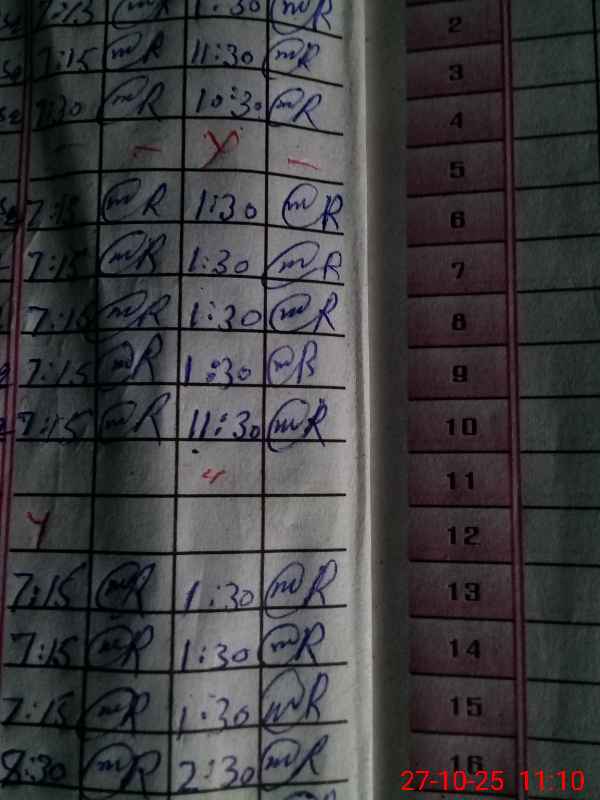 7:15 mR 1:30 mR 2
7:15 mR 11:30 mR 3
7:30 mR 10:30 mR 4
5
7:15 mR 1:30 mR 6
7:15 mR 1:30 mR 7
7:15 mR 1:30 mR 8
7:15 mR 1:30 mR 9
7:15 mR 11:30 mR 10
11
12
7:15 mR 1:30 mR 13
7:15 mR 1:30 mR 14
7:15 mR 1:30 mR 15
8:30 mR 2:30 mR 16
27-10-25 11:10